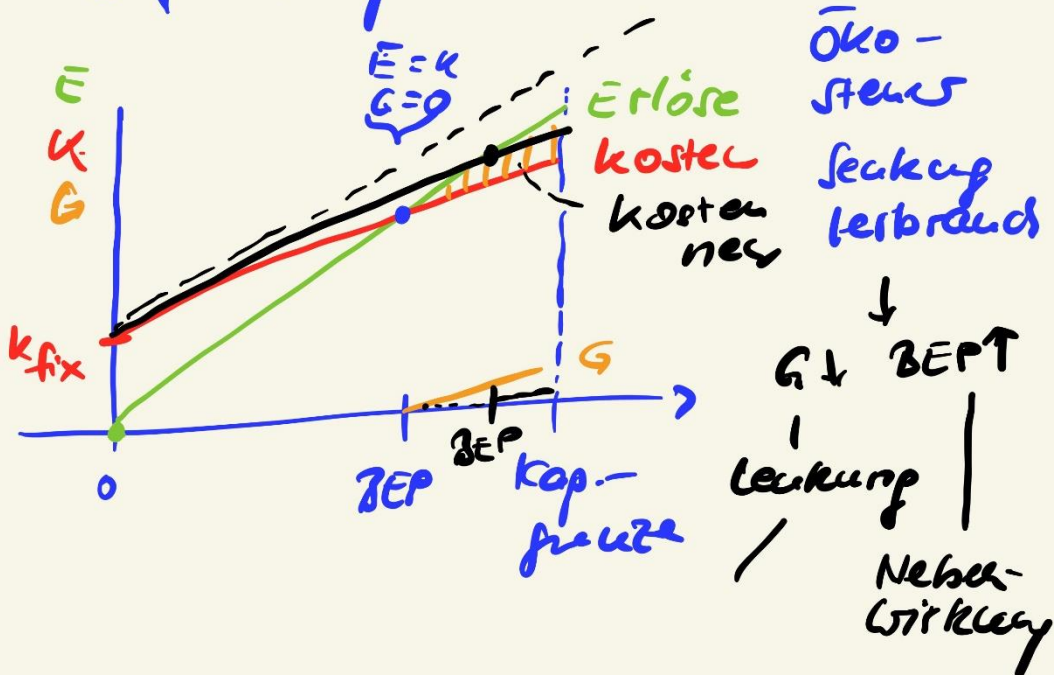 E = K
G = 0
E
K
G
Erlöse
Kosten
Kosten
neu
K fix
0
BEP
BEP
Kap.-
grenze
G
Öko-
steuer
Senkung
Verbrauch
↓
G ↓ BEP ↑
Lenkung
Neben-
wirkung